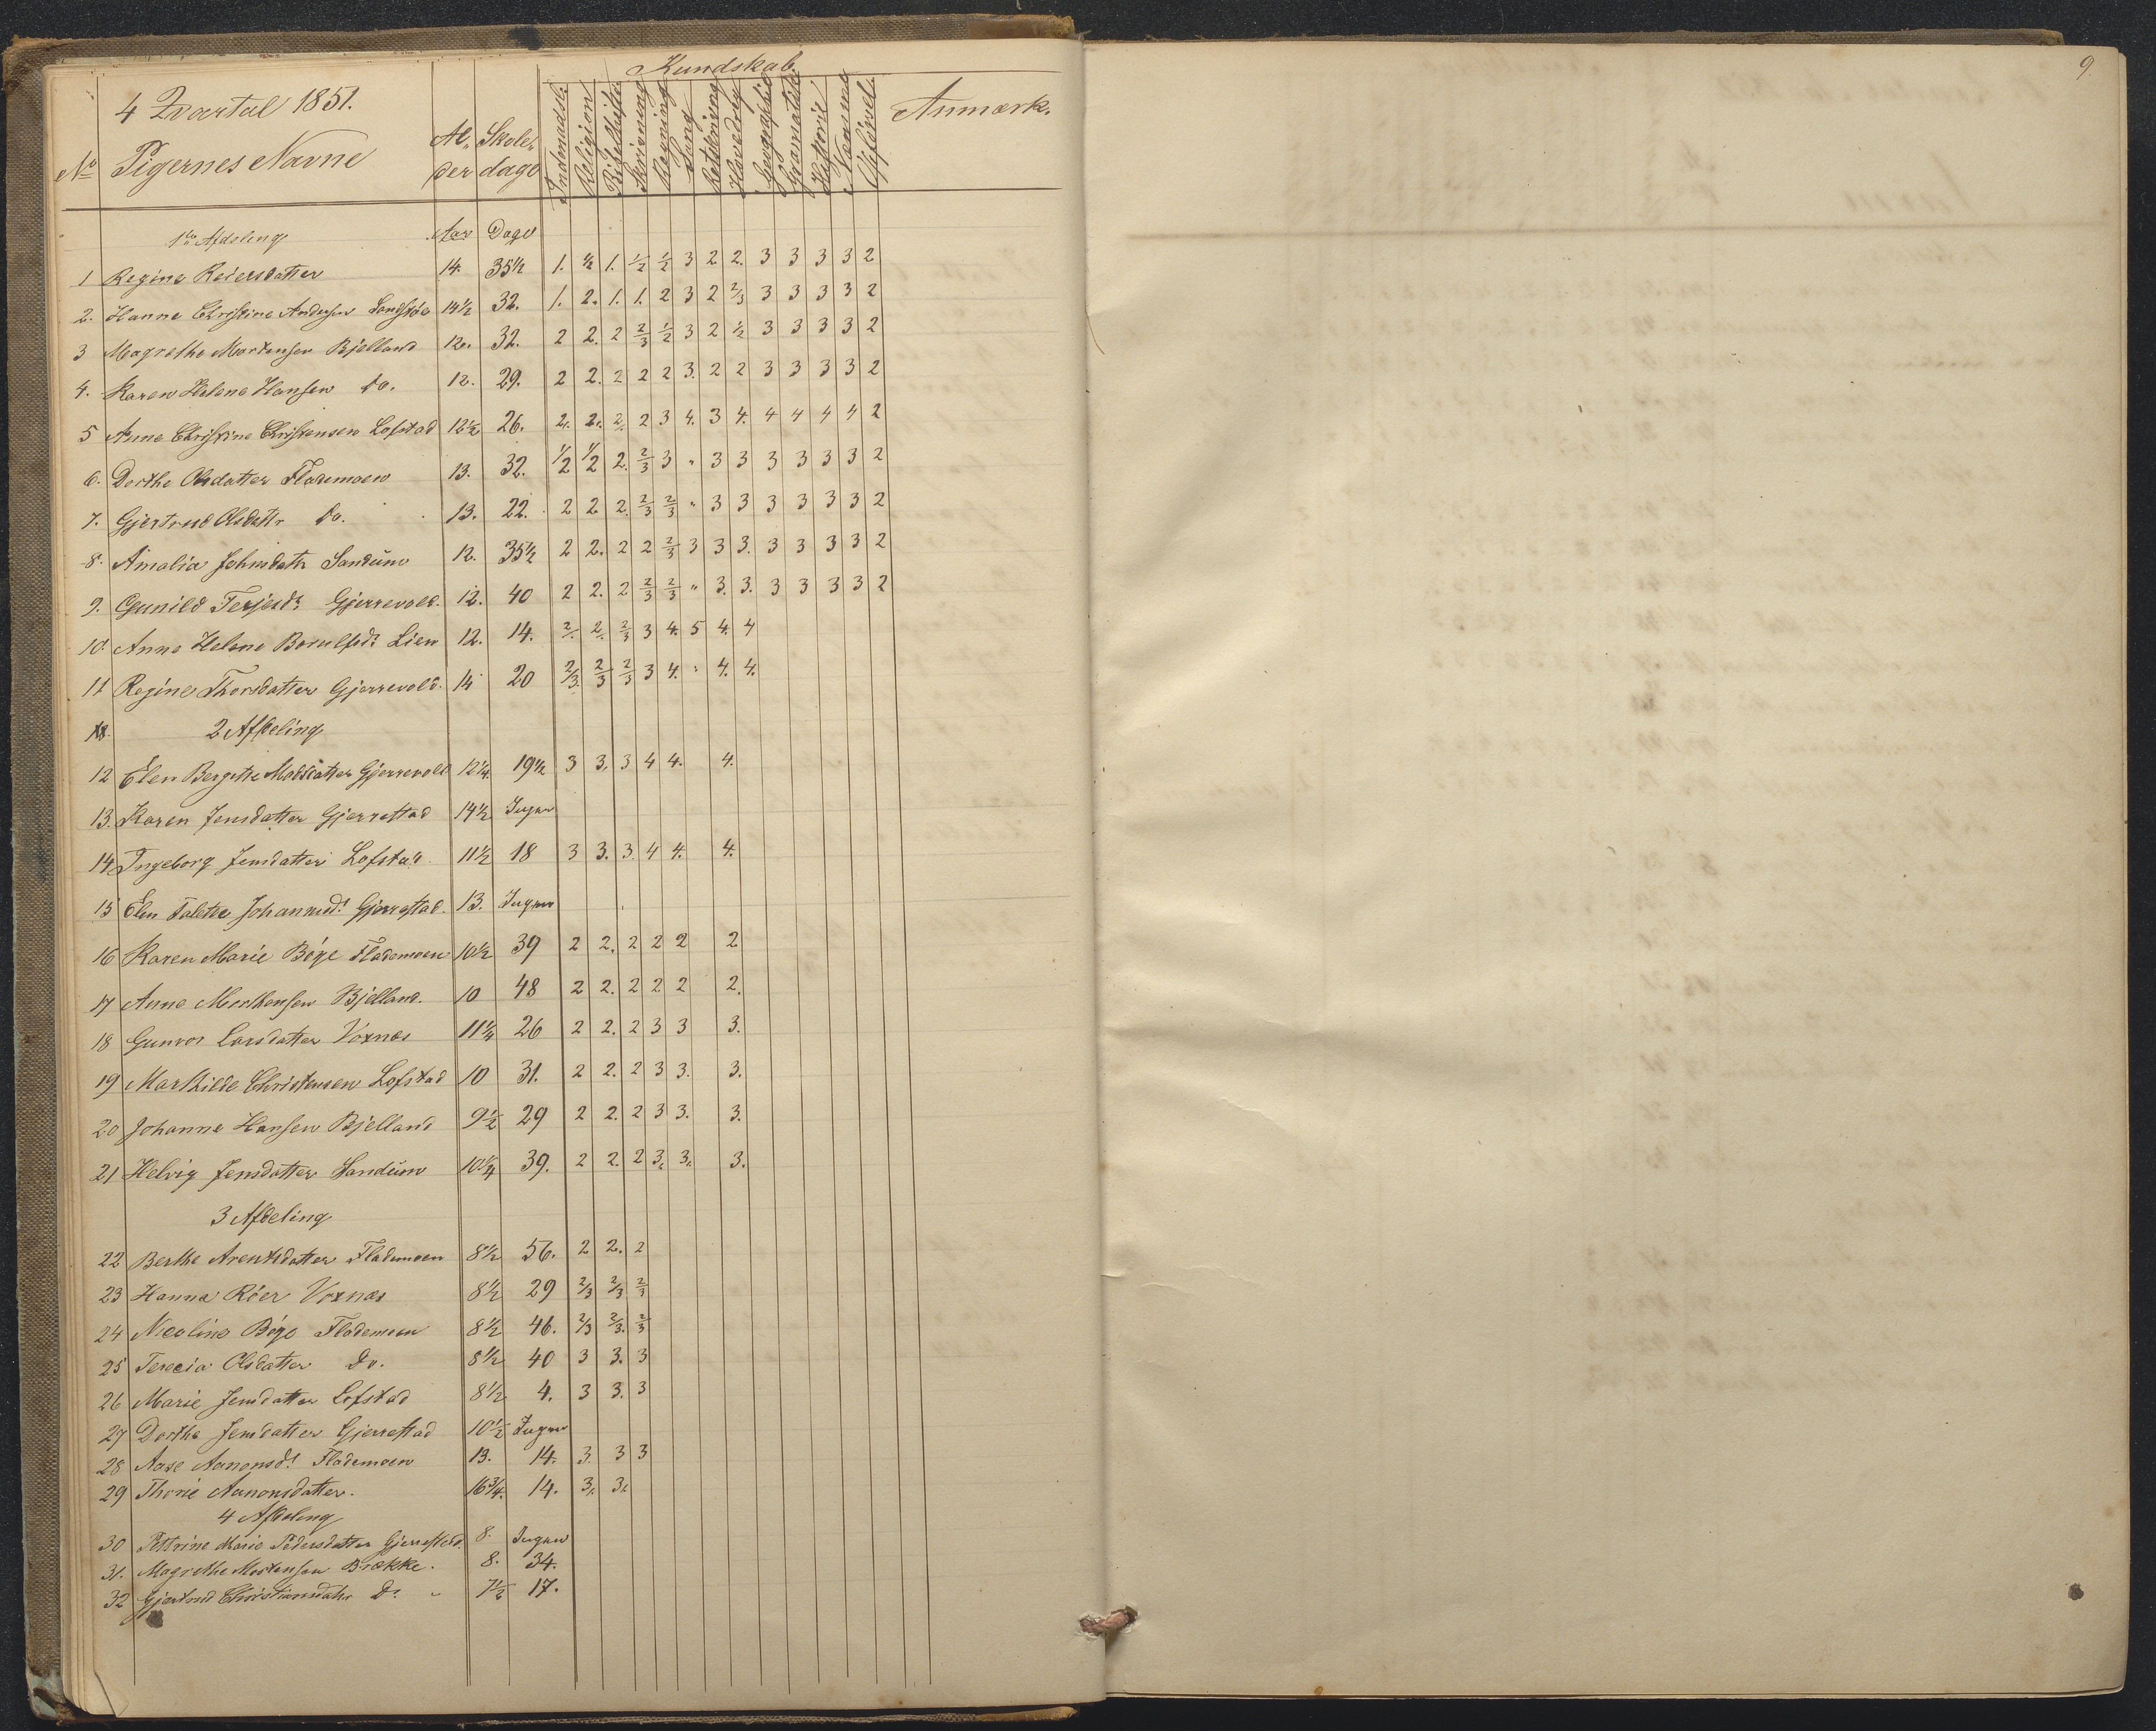 9.
Kundskab.
4 Qvartal 1851.
No Pigernes Navne Al- der Skole- dage Religion Skrivning Regning Sang Retskrivning Geographie Historie Anmærk.
1ste Afdeling Aar Dage
1 Regine Reiersdatter 14. 35½ 1. ½ 1. ½ ½ 3 2 2. 3 3 3 3 2
2. Hanne Christine Andersen 14½ 32. 1. 2. 1. 1. 2 3 2 2/3 3 3 3 3 2
3 Magrethe Mortensen Bjelland 12. 32. 2 2. 2 2/3 ½ 3 2 ½ 3 3 3 3 2
4. Karen Helene Hansen Do. 12. 29. 2 2. 2 2 2 3. 2 2 3 3 3 3 2
5 Anne Christine Christensen Lofstad 12½ 26. 2. 2. 2. 2 3 4. 3 4. 4 4 4 4 2
6. Dorthe Olsdatter Flademoen 13. 32. ½ ½ 2. 2/3 3 " 3 3 3 3 3 3 2
7. Gjertrud Olsdattr Do. 13. 22. 2 2 2. 2/3 2/3 " 3 3 3 3 3 3 2
8. Amalia Johnsdatr Sandum 12. 35½ 2 2. 2 2 2/3 3 3 3. 3 3 3 3 2
9. Gunild Terjesdr Gjerrevold. 12. 40 2 2. 2 2/3 2/3 " 3. 3. 3 3 3 3 2
10. Anne Helene Lien 12. 14. 2. 2. 2/3 3 4. 5 4. 4
11 Regine Thorsdatter Gjerrevold. 14 20 2/3. 2/3 2/3 3 4. " 4. 4.
2 Afdeling
12 Elen Bergitte Madsdatter Gjerrevold 12¼. 19½ 3 3. 3 4 4. 4.
13. Karen Jensdatter Gjerrestad 14½ Ingen
14 Ingeborg Jensdatter Lofstad 11½ 18 3 3. 3. 4 4. 4.
15 Elen Johannesdr Gjerrestad. 13. Ingen
16 Karen Marie Böye Flademoen 10½ 39 2 2. 2 2 2 2
17 Anne Morthensen Bjelland. 10 48 2 2. 2 2 2 2.
18 Gunvor Larsdatter Voxnæs 11¼ 26 2 2. 2 3 3 3.
19 Mathilde Christensen Lofstad 10 31. 2 2. 2 3 3. 3.
20 Johanne Hansen Bjelland 9½ 29 2 2. 2 3 3. 3.
21 Helvig Jensdatter Sandum 10¼ 39. 2 2. 2 3. 3. 3.
3 Afdeling
22 Berthe Arentsdatter Flademoen 8½ 56. 2 2. 2
23 Hanna Röer Voxnæs 8½ 29 2/3 2/3 2/3
24 Nicoline Böye Flademoen 8½ 46. 2/3 2/3. 2/3
25 Terecia Olsdatter Do. 8½ 40 3 3. 3
26 Marie Jensdatter Lofstad 8½ 4. 3 3. 3
27 Dorthe Jensdatter Gjerrestad 10½ Ingen
28 Aase Aanonsdr Flademoen 13. 14. 3. 3 3
29 Thorie Aanonsdatter. 16¾. 14. 3. 3.
4 Afdeling
30 Pettrine Marie Pedersdatter Gjerrestad. 8. Ingen
31. Magrethe Mortensen Brække. 8. 34.
32 Gjertrud Christiansdatr Do. 7½ 17.